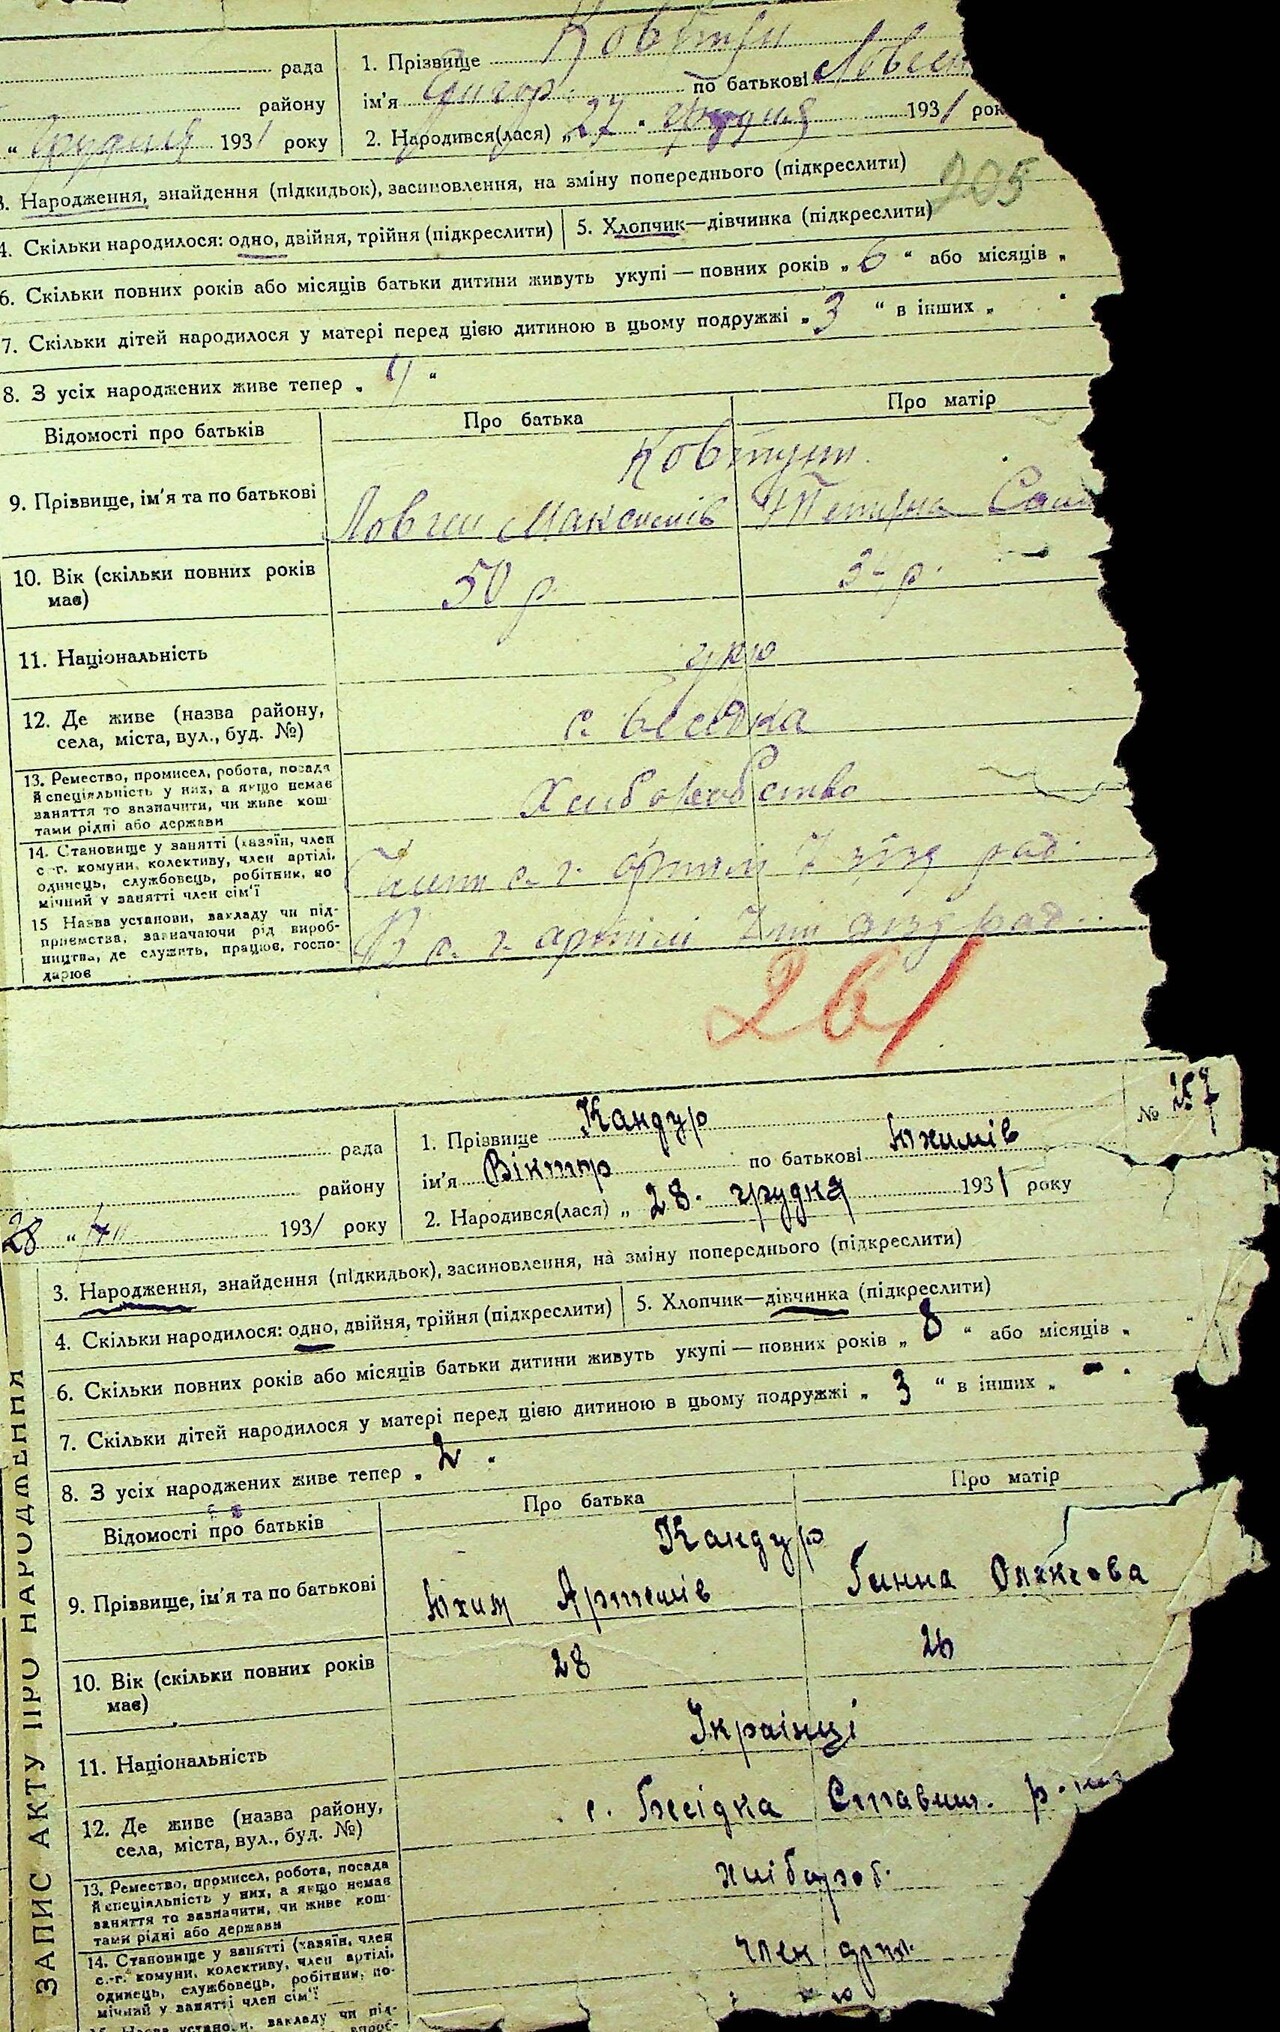 рада
району
„ Грудня 1931 року
1. Прізвище Ковтун
ім'я Григор. по батькові
2. Народився(лася) „27" грудня 1931 рок
3. Народження, знайдення (підкидьок), засиновлення, на зміну попереднього (підкреслити)
205
4. Скільки народилося: одно, двійня, трійня (підкреслити)
5. Хлопчик—дівчинка (підкреслити)
6. Скільки повних років або місяців батьки дитини живуть укупі — повних років „ 6 " або місяців „
7. Скільки дітей народилося у матері перед цією дитиною в цьому подружжі „ 3 " в інших „ "
8. З усіх народжених живе тепер „ 4 "
Відомості про батьків
Про батька
Про матір
Ковтун.
9. Прізвище, ім'я та по батькові
Максимів Тетяна
10. Вік (скільки повних років має)
50 р.
р.
11. Національність
укр
12. Де живе (назва району, села, міста, вул., буд. №)
с. Бесідка
13. Ремество, промисел, робота, посада
й спеціяльність у них, а якщо немає
заняття то зазначити, чи живе кош-
тами рідні або держави
Хліборобство
14. Становище у занятті (хазяїн, член
с.-г. комуни, колективу, член артілі,
одинець, службовець, робітник, по
мічний у занятті член сім'ї
Член с. г. артілі 7 зїзд рад.
15 Назва установи, закладу чи під-
приємства, зазначаючи рід вироб-
ництва, де служить, працює, госпо-
дарює
В с. г. артілі 7 зїзд рад..
261
рада
району
28 " 193/ року
1. Прізвище Кандур
№ 257
ім'я Віктор по батькові Юхимів
2. Народився(лася) „ 28. грудня 1931 року
3. Народження, знайдення (підкидьок), засиновлення, на зміну попереднього (підкреслити)
4. Скільки народилося: одно, двійня, трійня (підкреслити)
5. Хлопчик—дівчинка (підкреслити)
6. Скільки повних років або місяців батьки дитини живуть укупі — повних років „ 8 " або місяців „ "
7. Скільки дітей народилося у матері перед цією дитиною в цьому подружжі „ 3 " в інших „ - "
8. З усіх народжених живе тепер „ 2 "
Відомості про батьків
Про батька
Про матір
Кандур
9. Прізвище, ім'я та по батькові
Юхим Артемів Ганна Олексова
10. Вік (скільки повних років має)
28
26
11. Національність
Українці
12. Де живе (назва району, села, міста, вул., буд. №)
с. Бесідка Ставищ.
13. Ремество, промисел, робота, посада
й спеціяльність у них, а якщо немає
заняття то зазначити, чи живе кош-
тами рідні або держави
хлібороб.
14. Становище у занятті (хазяїн, член
с.-г. комуни, колективу, член артілі,
одинець, службовець, робітник, по-
мічний у занятті член сім'ї
член арт.
15. Назва установи, закладу чи під-
ЗАПИС АКТУ ПРО НАРОДЖЕННЯ